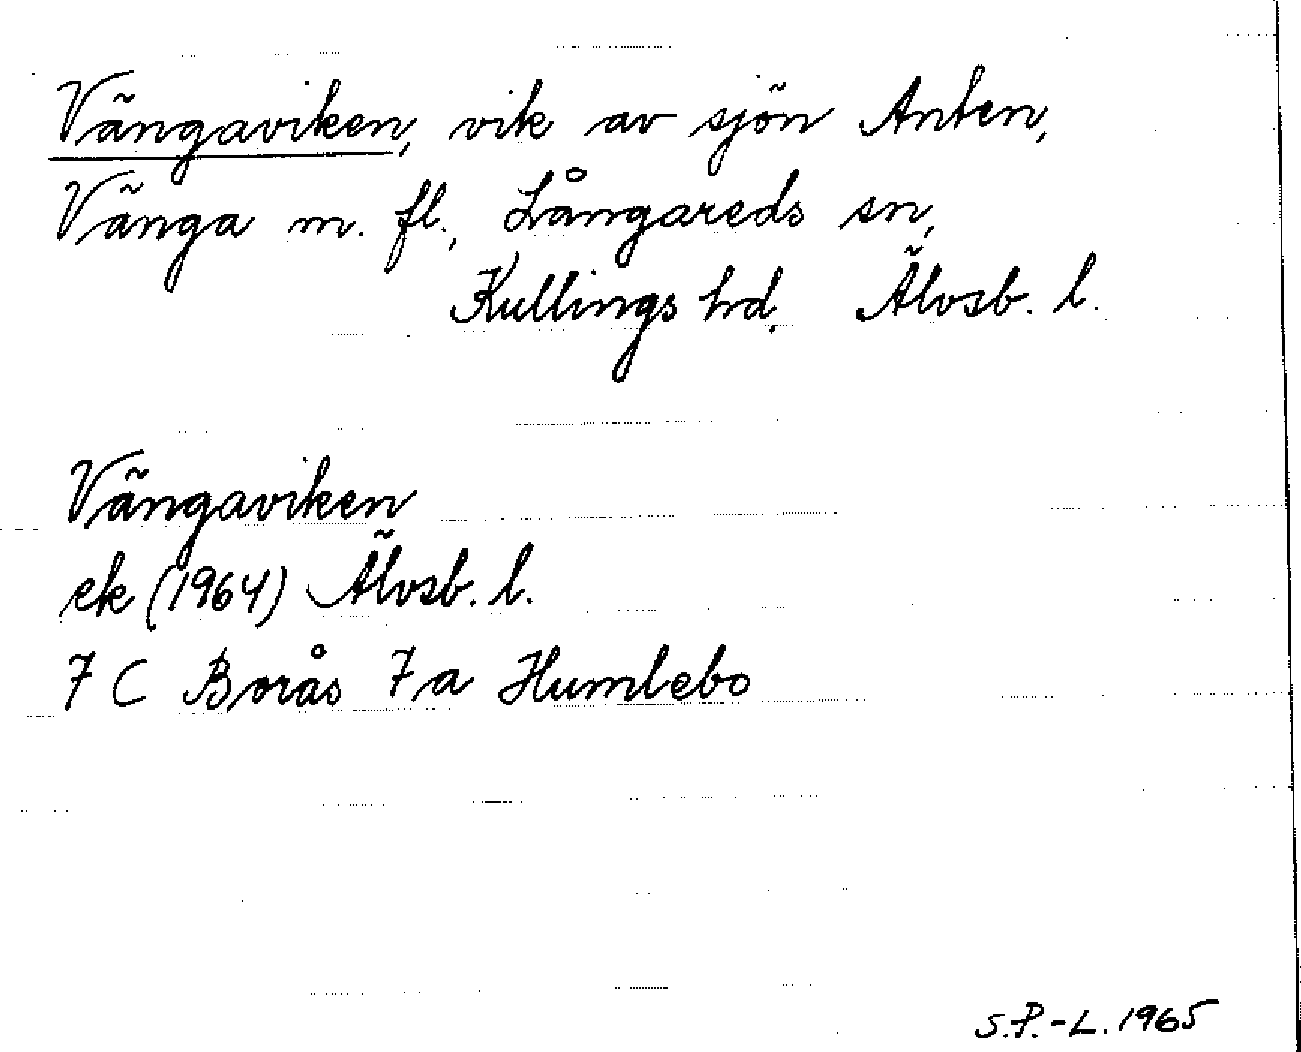 Vängaviken, vik av sjön Anten,
Vänga m. fl., Långareds sn,
Kullings hd, Älvsb. l.
Vängaviken
ek (1964) Älvsb. l.
7 C Borås 7 a Humlebo
S.P.-L. 1965